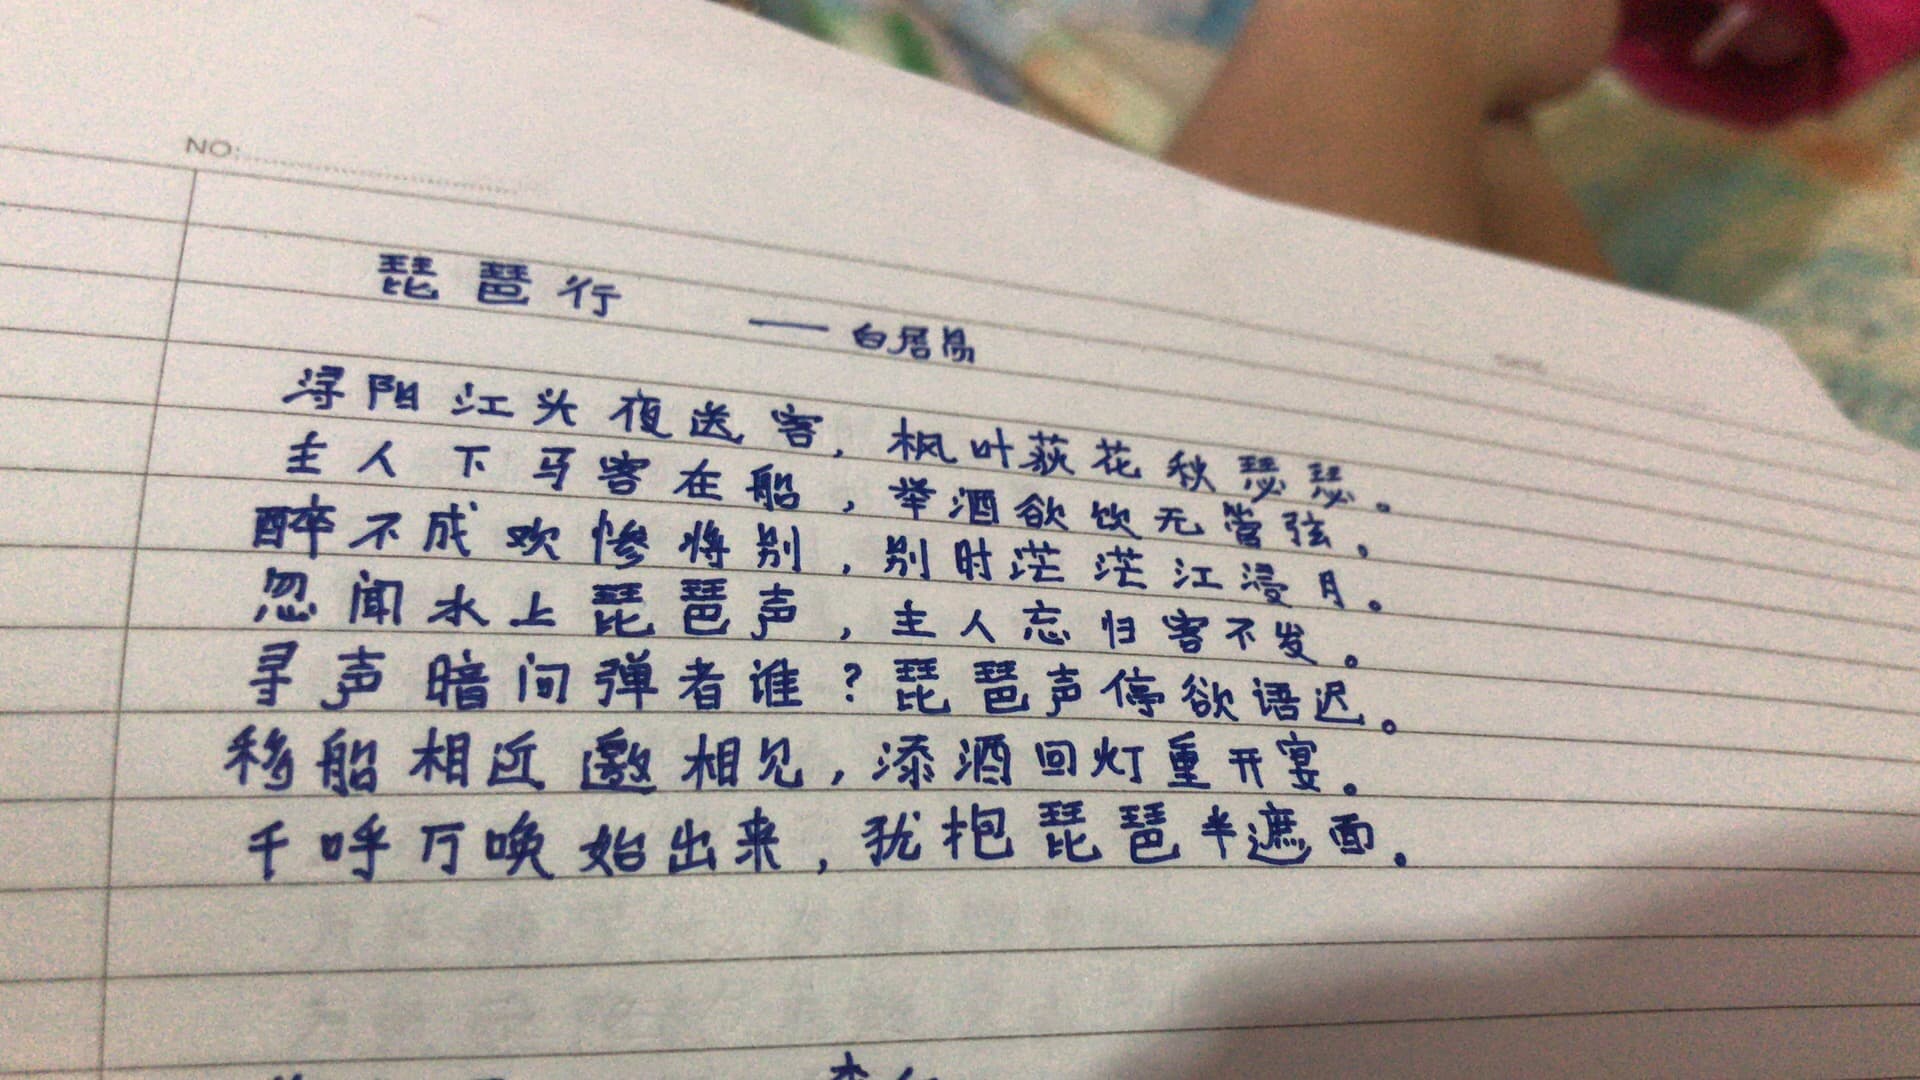 NO:
琵琶行
——白居易
浔阳江头夜送客,枫叶荻花秋瑟瑟。
主人下马客在船,举酒欲饮无管弦。
醉不成欢惨将别,别时茫茫江浸月。
忽闻水上琵琶声,主人忘归客不发。
寻声暗问弹者谁?琵琶声停欲语迟。
移船相近邀相见,添酒回灯重开宴。
千呼万唤始出来,犹抱琵琶半遮面。